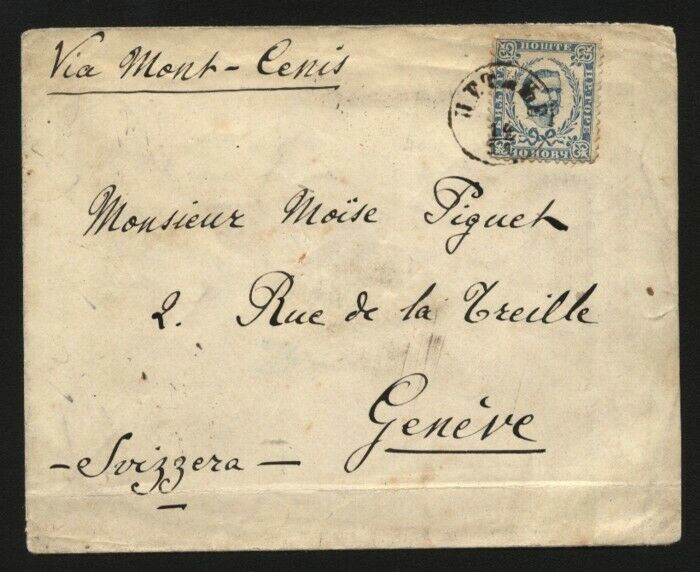 Via Mont-Cenis
ПОШТЕ
Monsieur Moïse Piguet
2. Rue de la Treille
Genève
- Svizzera -